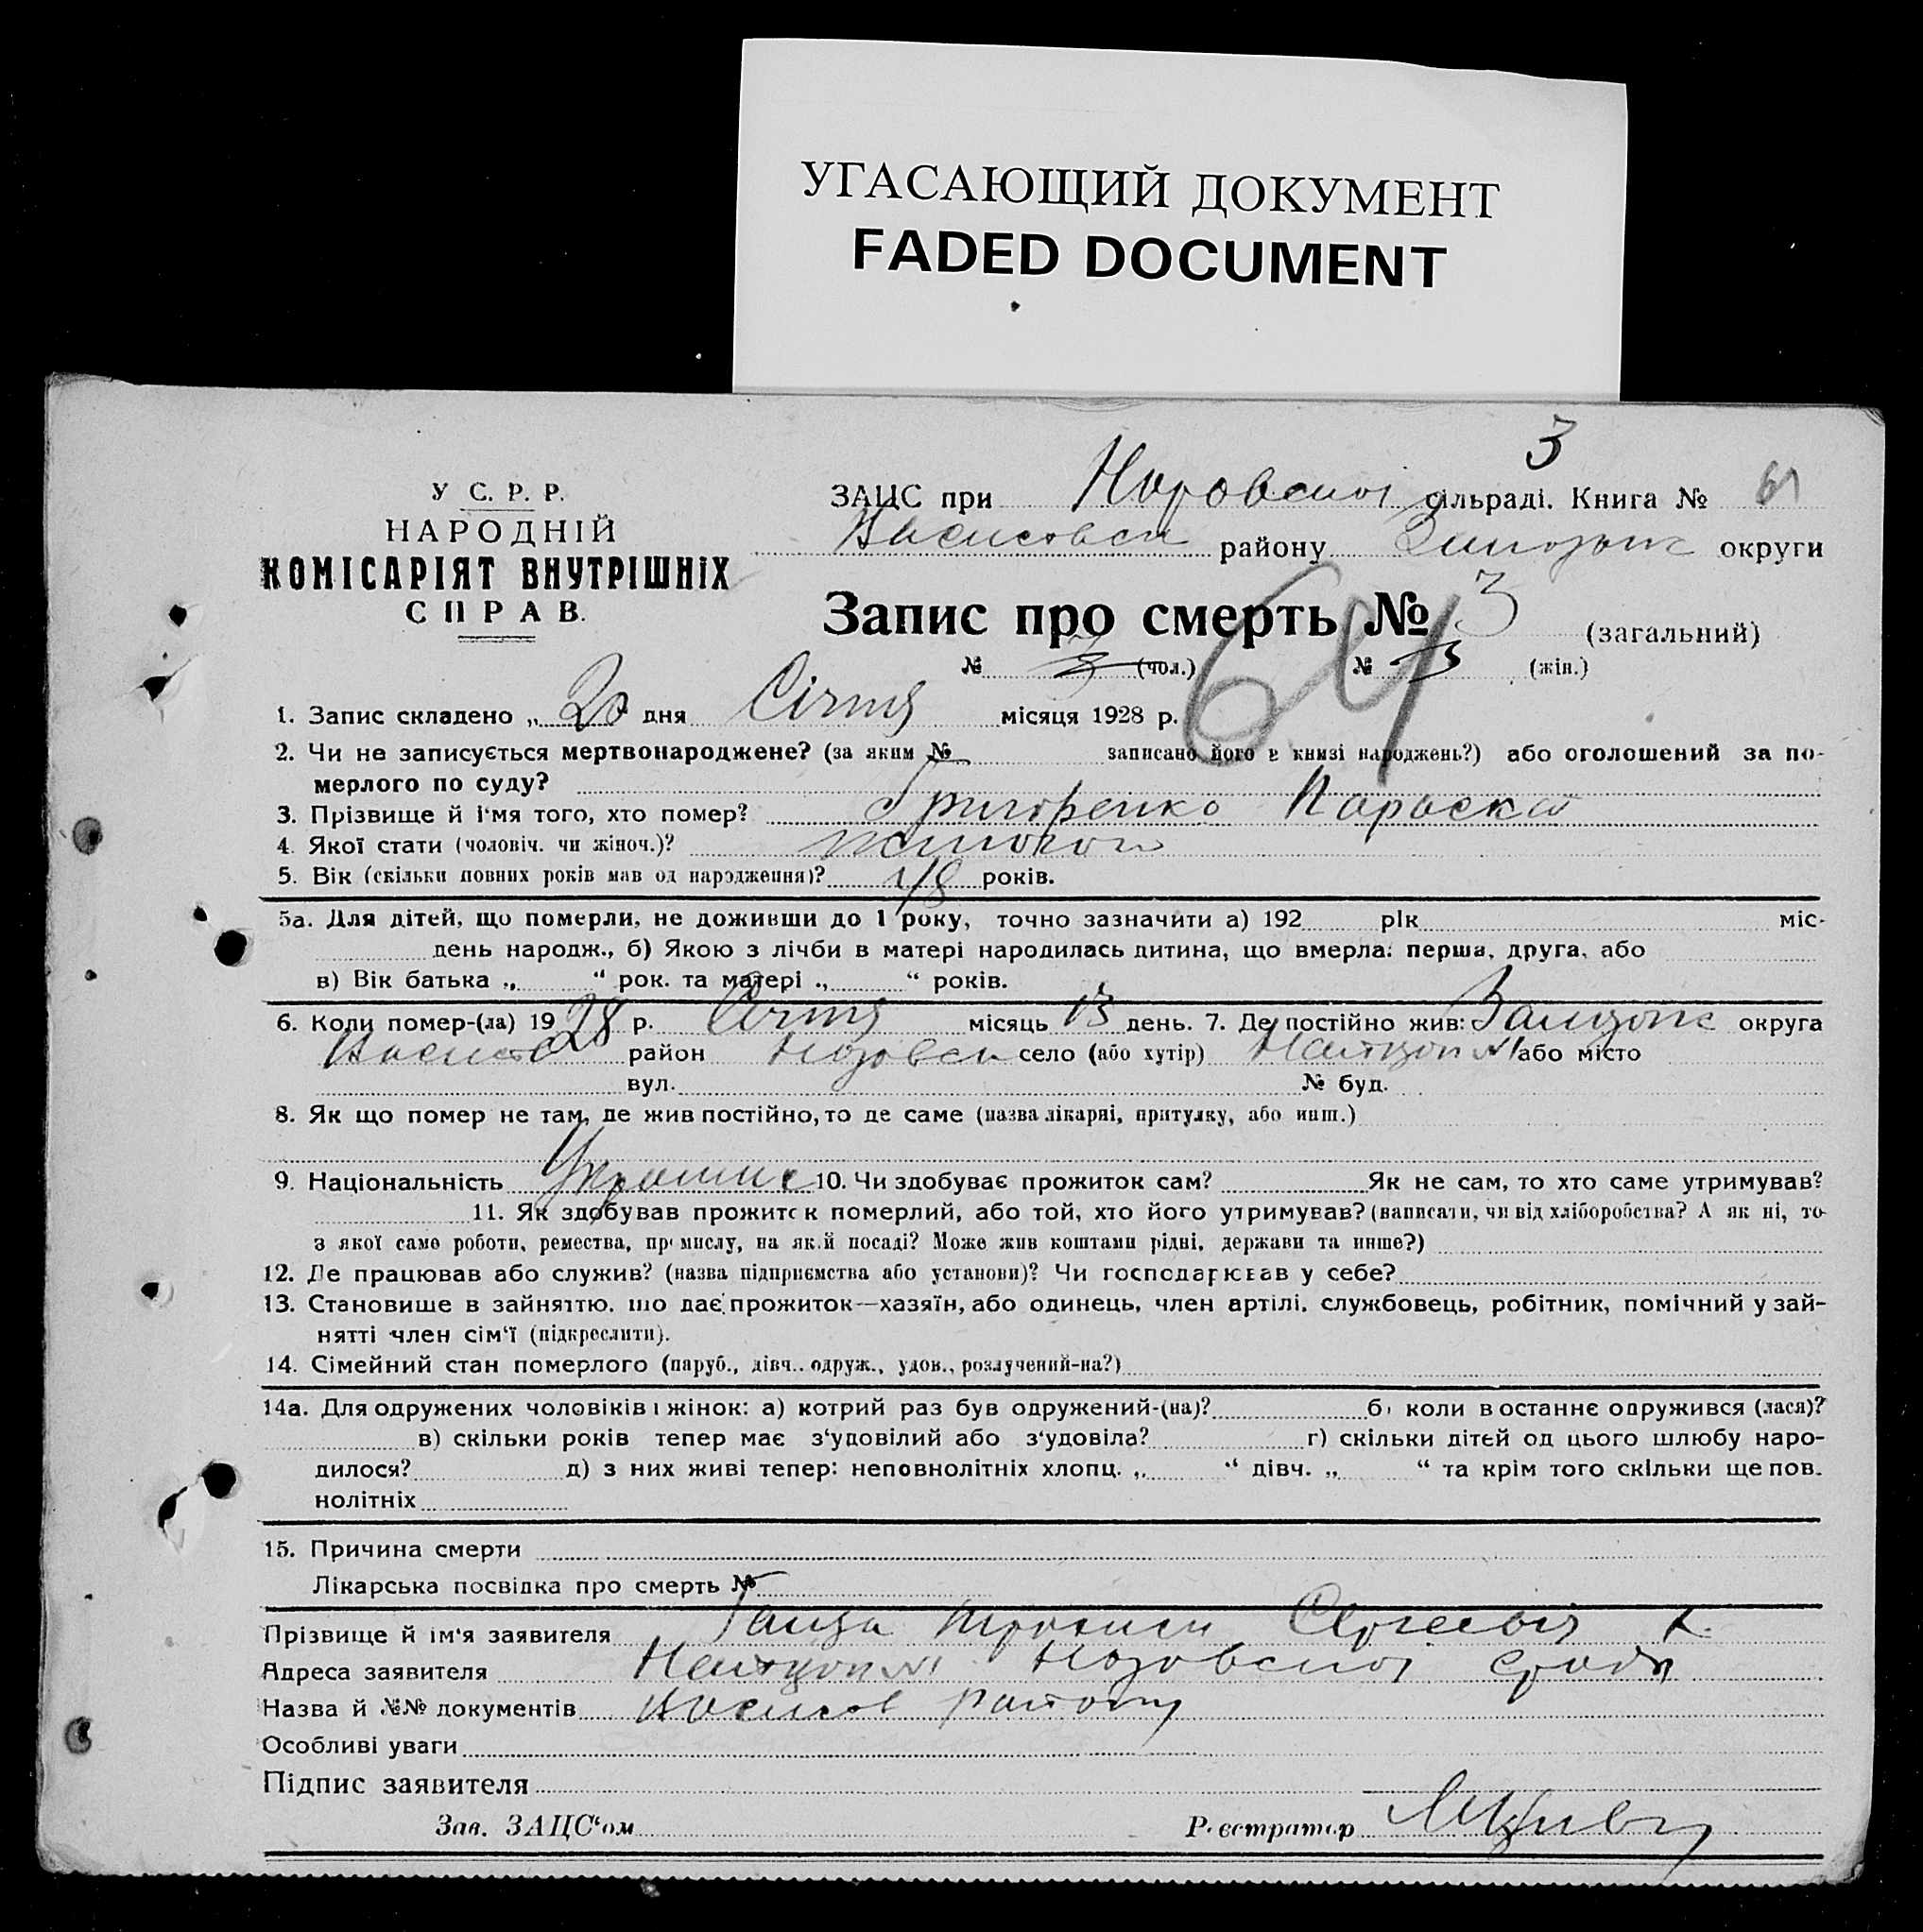 УГАСАЮЩИЙ ДОКУМЕНТ
FADED DOCUMENT
3
У С. Р. Р.
НАРОДНІЙ
КОМІСАРІЯТ ВНУТРІШНІХ
СПРАВ.
ЗАЦС при сільраді. Книга №
району округи
Запис про смерть № 3 (загальний)
64
№ 3 (чол.) № 3 (жін.)
1. Запис складено „ 20 дня Січня місяця 1928 р.
2. Чи не записується мертвонароджене? (за яким № записано його в книзі народжень?) або оголошений за по-
мерлого по суду?
3. Прізвище й і'мя того, хто помер? Григоренко Параска
4. Якої стати (чоловіч. чи жіноч.)?
5. Вік (скільки повних років мав од народження)? років.
5а. Для дітей, що померли, не доживши до 1 року, точно зазначити а) 192 рік міс-
день народж., б) Якою з лічби в матері народилась дитина, що вмерла: перша, друга, або
в) Вік батька „ “ рок. та матері „ “ років.
6. Коли помер-(ла) 1928 р. Січня місяць 13 день. 7. Де постійно жив: округа
район село (або хутір) або місто
вул. № буд.
8. Як що помер не там, де жив постійно, то де саме (назва лікарні, притулку, або инш.)
9. Національність 10. Чи здобуває прожиток сам? Як не сам, то хто саме утримував?
11. Як здобував прожиток померлий, або той, хто його утримував? (написати, чи від хліборобства? А як ні, то
з якої само роботи, ремества, промислу, на якій посаді? Може жив коштами рідні, держави та инше?)
12. Де працював або служив? (назва підприємства або установи)? Чи господарював у себе?
13. Становище в зайняттю, що дає прожиток—хазяїн, або одинець, член артілі, службовець, робітник, помічний у зай-
нятті член сім'ї (підкреслити).
14. Сімейний стан померлого (паруб., дівч., одруж., удов., розлучений-на?)
14а. Для одружених чоловіків і жінок: а) котрий раз був одружений-(на)? б) коли востаннє одружився (лася)?
в) скільки років тепер має з'удовілий або з'удовіла? г) скільки дітей од цього шлюбу наро-
дилося? д) з них живі тепер: неповнолітніх хлопц. „ “ дівч. „ “ та крім того скільки ще пов.
нолітніх
15. Причина смерти
Лікарська посвідка про смерть №
Прізвище й ім'я заявителя
Адреса заявителя
Назва й №№ документів району
Особливі уваги
Підпис заявителя
Зав. ЗАЦС'ом Реєстратор